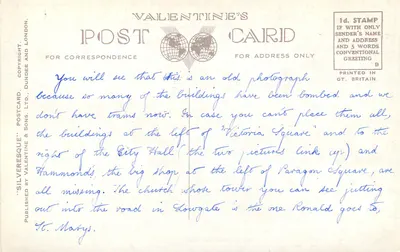 VALENTINE'S
POST CARD
FOR CORRESPONDENCE
FOR ADDRESS ONLY
1d. STAMP
IF WITH ONLY
SENDER'S NAME
AND ADDRESS
AND 5 WORDS
CONVENTIONAL
GREETING
PRINTED IN
GT. BRITAIN
"SILVERESQUE" POSTCARD. COPYRIGHT.
PUBLISHED BY VALENTINE & SONS, LTD., DUNDEE AND LONDON.
You will see that this is an old photograph
because so many of the buildings have been bombed and we
don't have trams now. In case you can't place them all,
the buildings at the left of "Victoria Square" and to the
right of the City Hall (the two pictures link up) and
Hammonds, the big shop at the left of Paragon Square, are
all missing. The church whose tower you can see jutting
out into the road in Lowgate is the one Ronald goes to,
St. Marys.